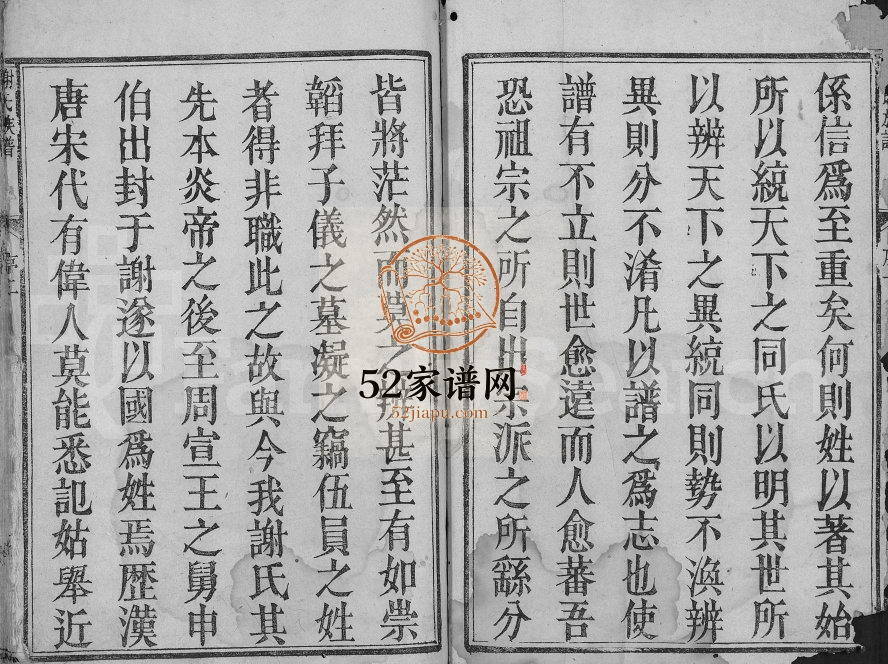 係信爲至重矣何則姓以著其始
所以統天下之同氏以明其世所
以辨天下之異統同則勢不渙辨
異則分不淆凡以譜之爲志也使
譜有不立則世愈遠而人愈蕃吾
恐祖宗之所自出宗派之所繇分
皆將茫然而莫之辨甚至有如崇
韜拜子儀之墓凝之竊伍員之姓
者得非職此之故與今我謝氏其
先本炎帝之後至周宣王之舅申
伯出封于謝遂以國爲姓焉歷漢
唐宋代有偉人莫能悉記姑舉近
謝氏族譜
序
52家谱网
52jiapu.com